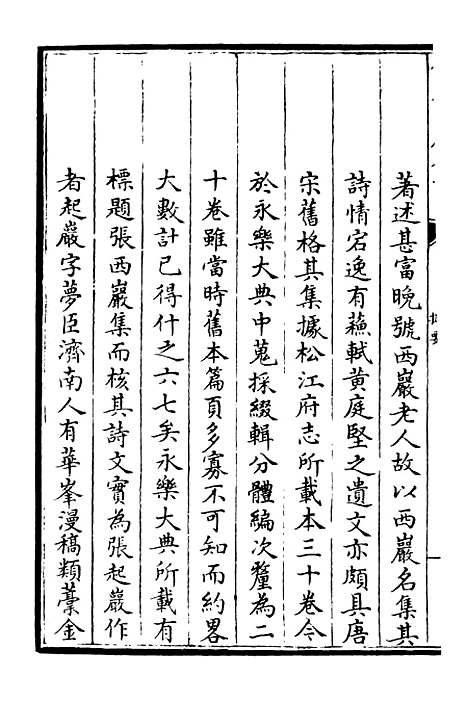 著述甚富晚號西巖老人故以西巖名集其
詩情宕逸有蘓軾黃庭堅之遺文亦頗具唐
宋舊格其集據松江府志所載本三十卷今
於永樂大典中蒐採綴輯分體編次釐為二
十卷雖當時舊本篇頁多寡不可知而約畧
大數計已得什之六七矣永樂大典所載有
標題張西巖集而核其詩文實為張起巖作
者起巖字夢臣濟南人有華峯漫稿類藁金